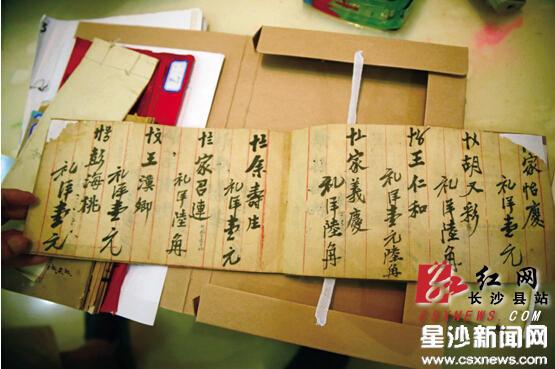 家怡慶
礼洋壹元
胡又彩
礼洋陸角
王仁和
礼洋壹元陸角
家義慶
礼洋陸角
余壽生
礼洋壹元
家召連
礼洋陸角
王漢卿
礼洋壹元
彭海桃
礼洋壹元
红网
长沙县站
CSXNEWS.COM
星沙新闻网
www.csxnews.com